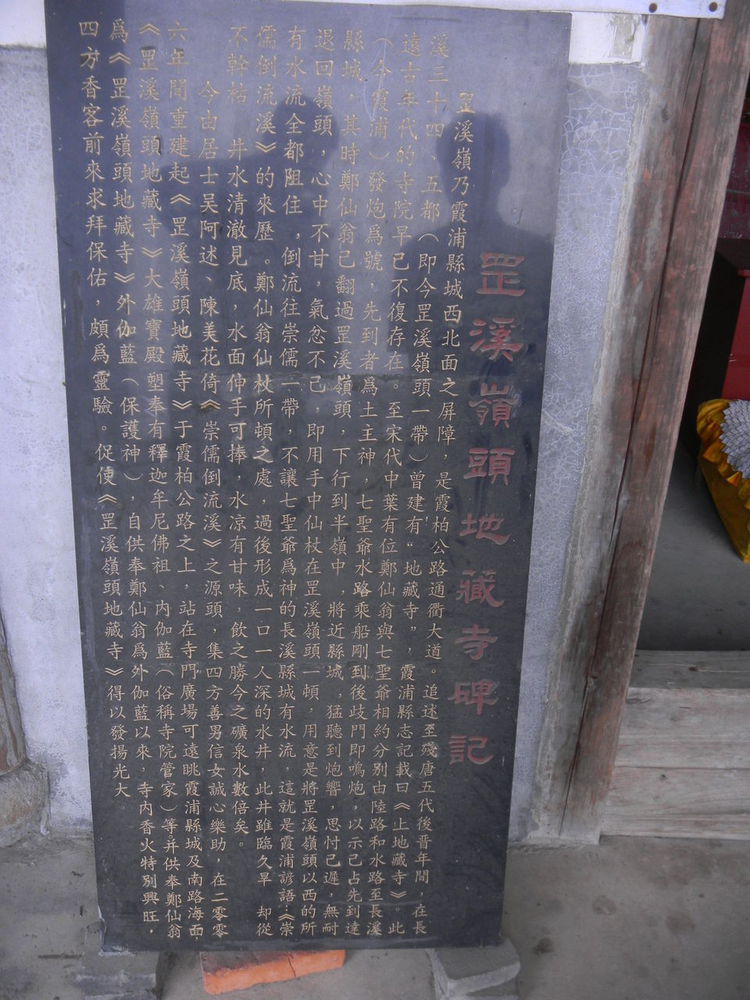 罡溪嶺頭地藏寺碑記
罡溪嶺乃霞浦縣城西北面之屏障，是霞柏公路通衢大道。追述至殘唐五代後晋年間，在長
溪三十四、五都（即今罡溪嶺頭一帶）曾建有“地藏寺”，霞浦縣志記載曰《上地藏寺》，此
遠古年代的寺院早已不復存在。至宋代中葉有位鄭仙翁與七聖爺相約分别由陸路和水路至長溪
（今霞浦）發炮爲號，先到者爲土主神，七聖爺水路乘船剛到後歧門即鳴炮，以示已占先到達
縣城，其時鄭仙翁已翻過罡溪嶺頭，下行到半嶺中，將近縣城，猛聽到炮響，思忖已遲，無耐
退回嶺頭，心中不甘，氣忿不已，即用手中仙杖在罡溪嶺頭一頓，用意是將罡溪嶺頭以西的所
有水流全都阻住，倒流往崇儒一帶，不讓七聖爺爲神的長溪縣城有水流，這就是霞浦諺語：《崇
儒倒流溪》的來歷。鄭仙翁仙杖所頓之處，過後形成一口一人深的水井，此井雖臨久旱，却從
不幹枯，井水清澈見底，水面伸手可捧，水凉有甘味，飲之勝今之礦泉水數倍矣。
今由居士吴阿述、陳美花倚《崇儒倒流溪》之源頭，集四方善男信女誠心樂助，在二零零
六年間重建起《罡溪嶺頭地藏寺》于霞柏公路之上，站在寺門廣場可遠眺霞浦縣城及南路海面，
《罡溪嶺頭地藏寺》大雄寶殿塑奉有釋迦牟尼佛祖、内伽藍（俗稱寺院管家）等并供奉鄭仙翁
爲《罡溪嶺頭地藏寺》外伽藍（保護神），自供奉鄭仙翁爲外伽藍以來，寺内香火特别興旺，
四方香客前來求拜保佑，頗爲靈驗。促使《罡溪嶺頭地藏寺》得以發揚光大